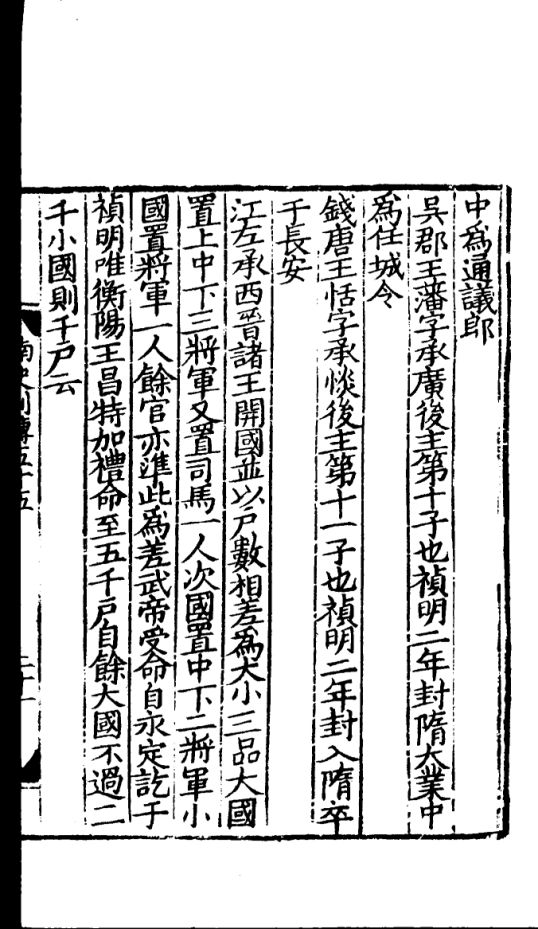 中爲通議郎
吳郡王藩字承廣後主第十子也禎明二年封隋大業中
爲任城令
錢唐王恬字承惔後主第十一子也禎明二年封入隋卒
于長安
江左承西晉諸王開國並以戶數相差爲大小三品大國
置上中下三將軍又置司馬一人次國置中下二將軍小
國置將軍一人餘官亦準此爲差武帝受命自永定訖于
禎明唯衡陽王昌特加禮命至五千戶自餘大國不過二
千小國則千戶云
南史列傳五十五